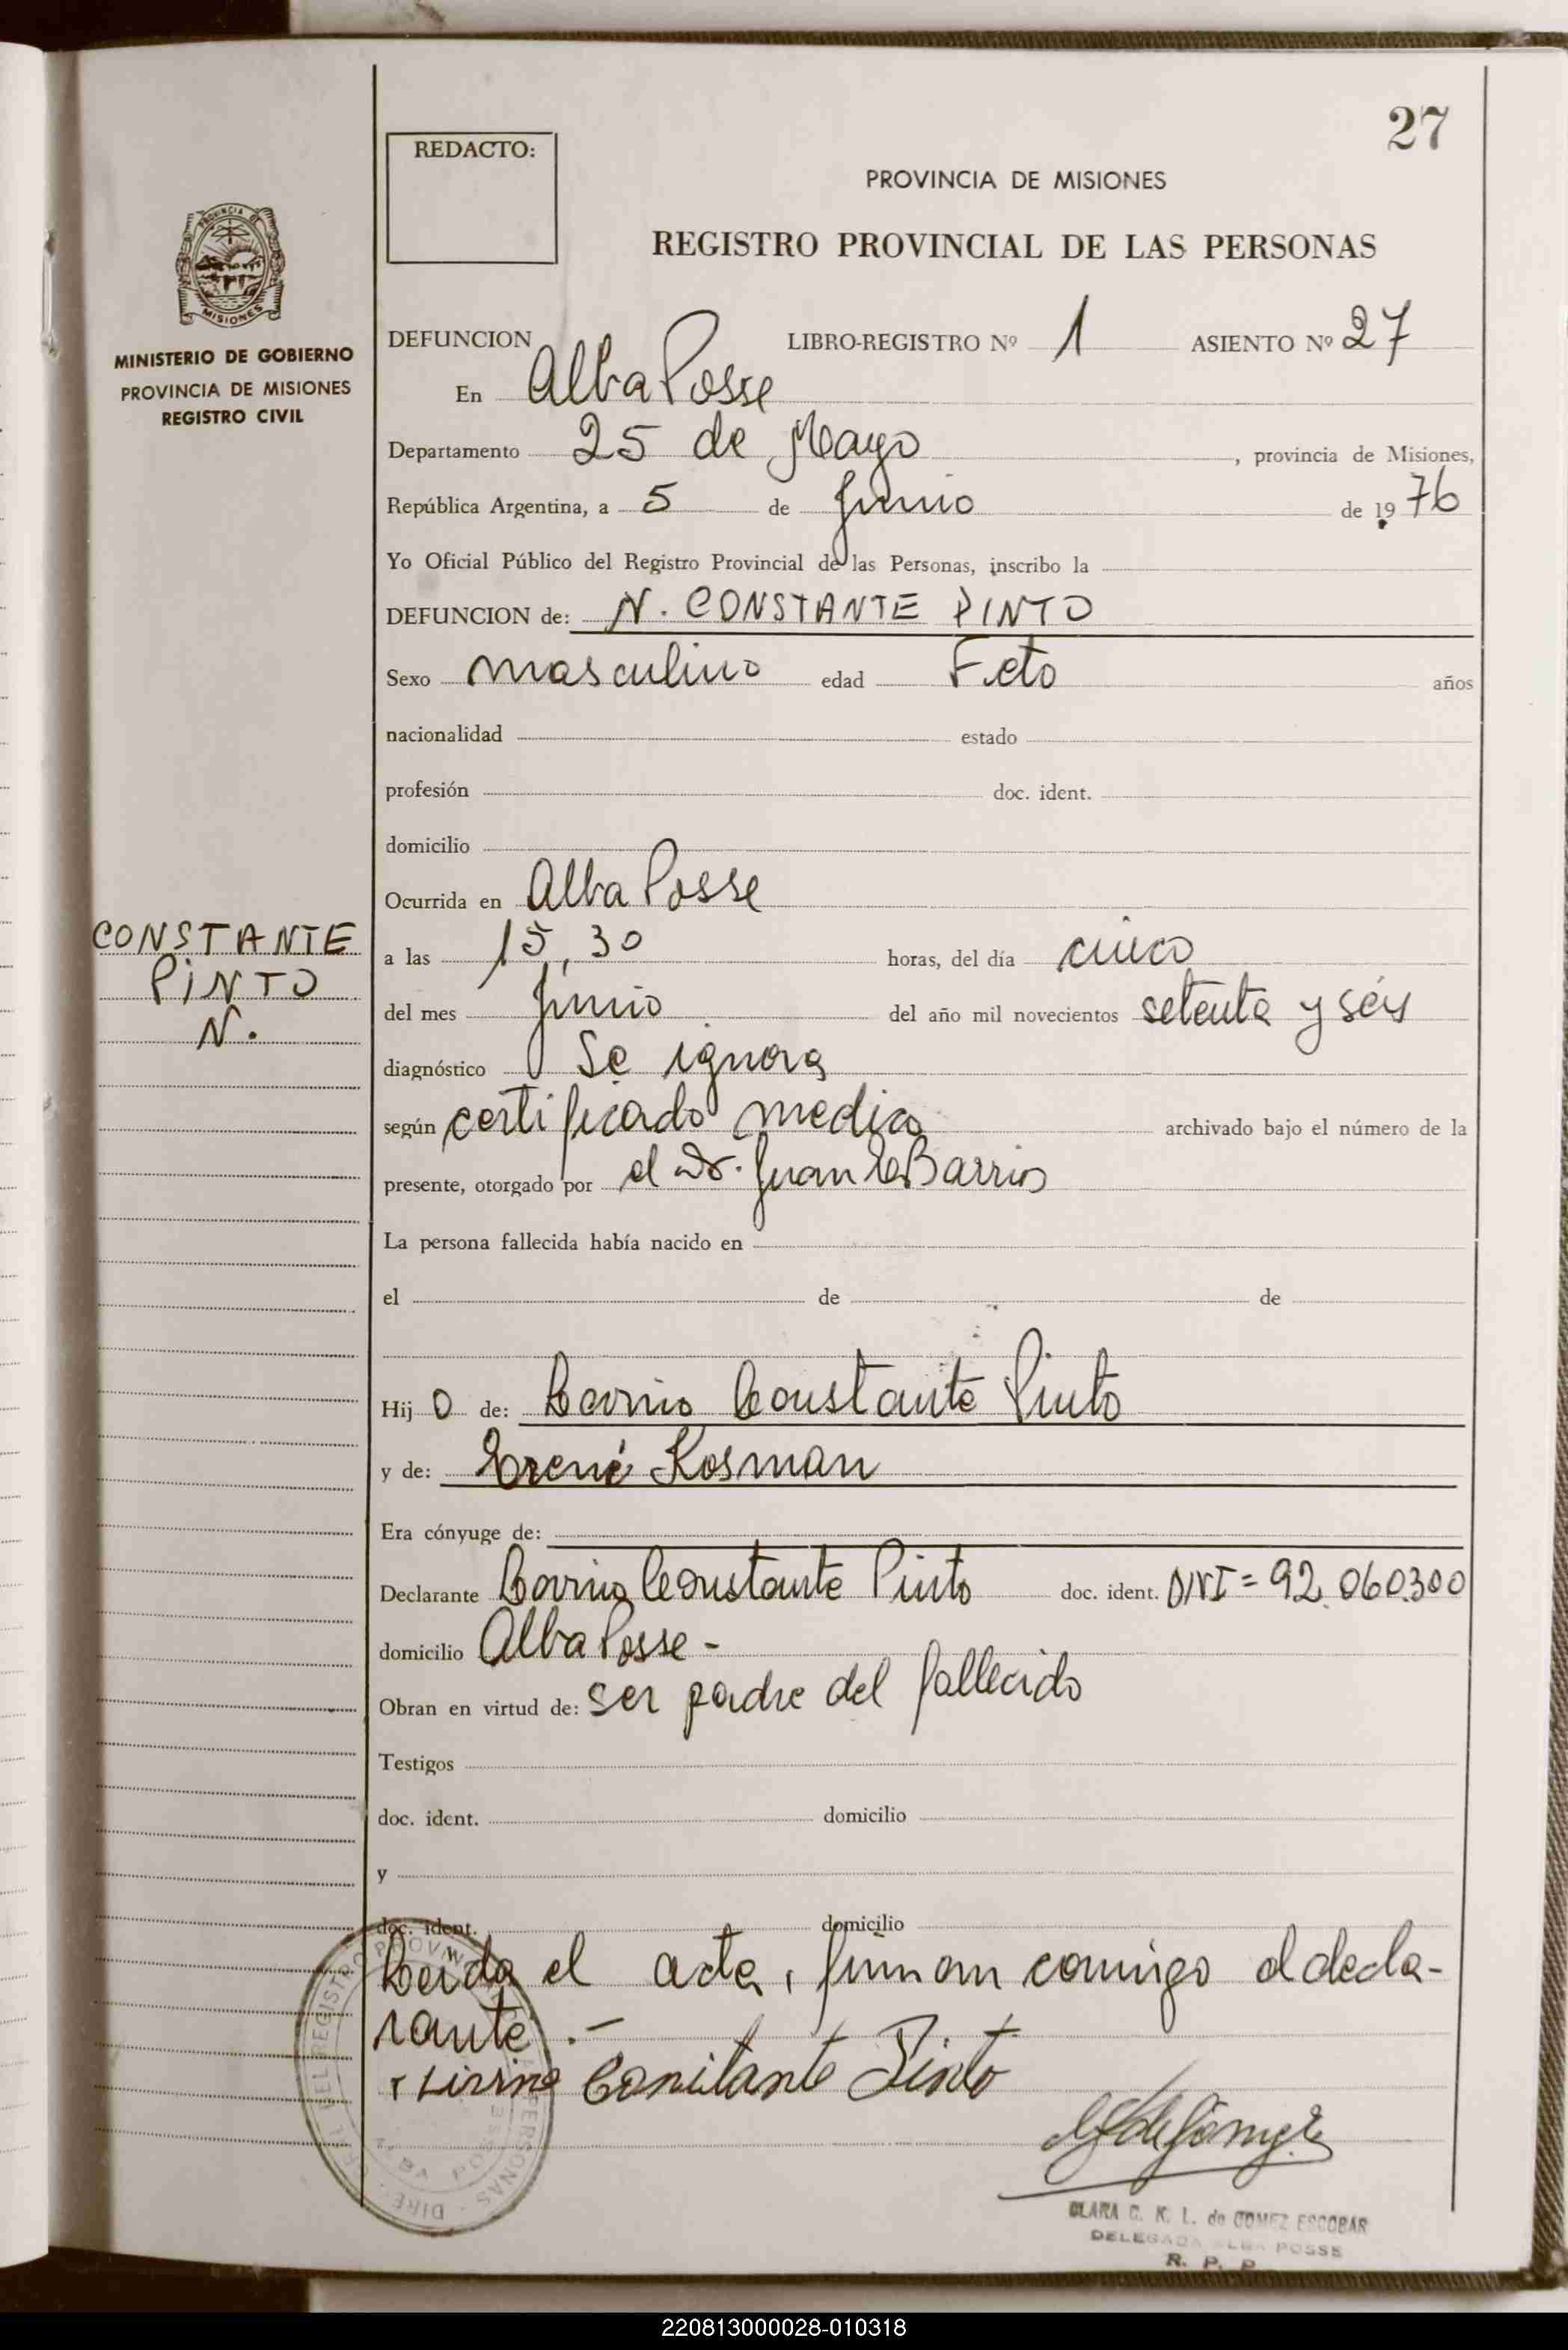 27
REDACTO:
PROVINCIA DE MISIONES
REGISTRO PROVINCIAL DE LAS PERSONAS
MINISTERIO DE GOBIERNO
PROVINCIA DE MISIONES
REGISTRO CIVIL
DEFUNCION LIBRO-REGISTRO Nº 1 ASIENTO Nº 27
En Alba Posse
Departamento 25 de Mayo, provincia de Misiones,
República Argentina, a 5 de Junio de 1976
Yo Oficial Público del Registro Provincial de las Personas, inscribo la
DEFUNCION de: N. CONSTANTE PINTO
Sexo masculino edad Feto años
nacionalidad estado
profesión doc. ident.
domicilio
Ocurrida en Alba Posse
CONSTANTE
PINTO
N.
a las 15,30 horas, del día cinco
del mes Junio del año mil novecientos setenta y séis
diagnóstico Se ignora
según certificado medico archivado bajo el número de la
presente, otorgado por el Dr. Juan Barrios
La persona fallecida había nacido en
el de de
Hijo de: Constante Pinto
y de: Irené Kosman
Era cónyuge de:
Declarante Constante Pinto doc. ident. DNI = 92.060.300
domicilio Alba Posse -
Obran en virtud de: ser padre del fallecido
Testigos
doc. ident. domicilio
y
doc. ident. domicilio
Leida el acta, firman conmigo el decla-
rante.-
Pinto
CLARA C. K. L. de GOMEZ ESCOBAR
DELEGADA ALBA POSSE
R. P. P.
220813000028-010318